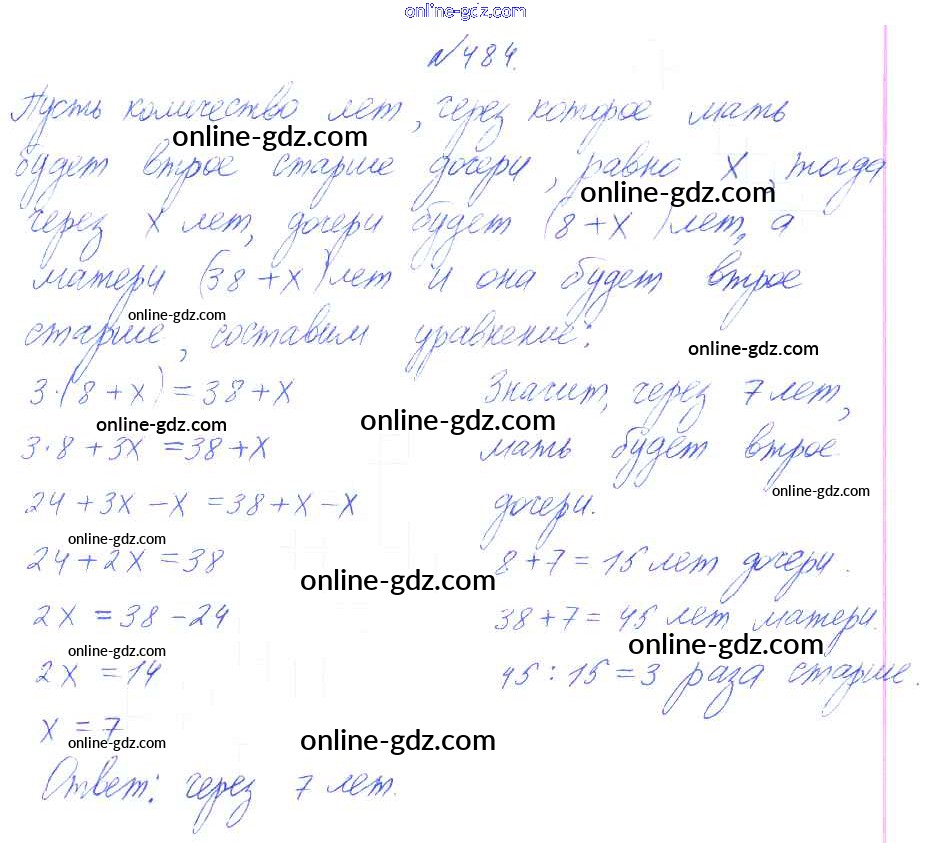 online-gdz.com
№484.
Пусть количество лет, через которое мать
online-gdz.com
будет втрое старше дочери, равно x, тогда
online-gdz.com
через x лет, дочери будет (8+x) лет, а
матери (38+x) лет и она будет втрое
online-gdz.com
старше, составим уравнение:
online-gdz.com
3·(8+x)=38+x
Значит, через 7 лет,
online-gdz.com
online-gdz.com
3·8+3x=38+x
мать будет втрое
online-gdz.com
24+3x-x=38+x-x
дочери.
online-gdz.com
24+2x=38
8+7=15 лет дочери.
online-gdz.com
2x=38-24
38+7=45 лет матери.
online-gdz.com
online-gdz.com
2x=14
45:15=3 раза старше.
x=7
online-gdz.com
online-gdz.com
Ответ: через 7 лет.